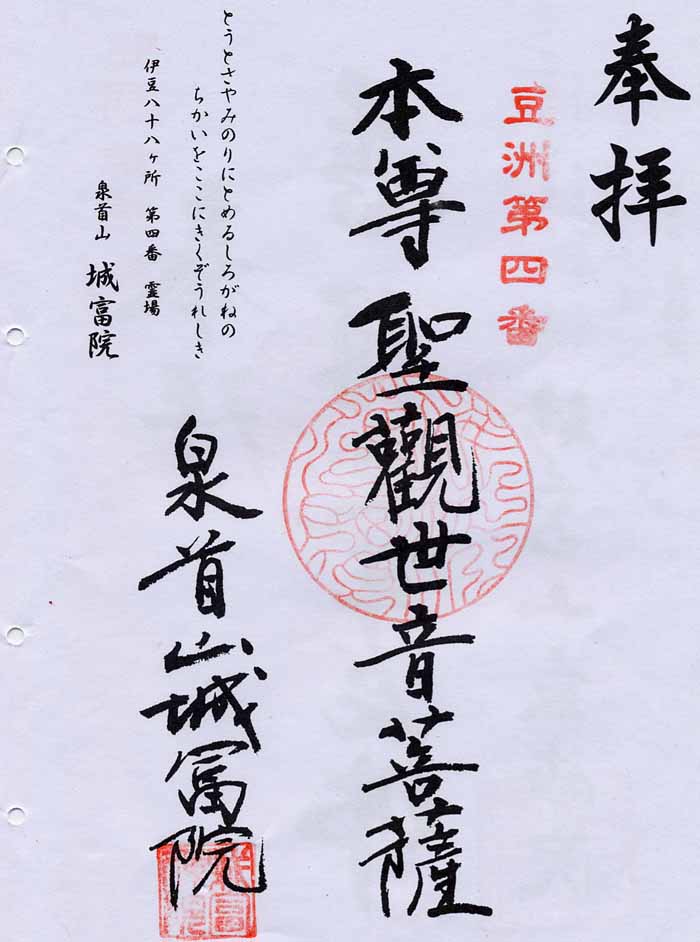 奉拝
豆洲第四番
本尊聖觀世音菩薩
泉首山城富院
とうとさやみのりにとめるしろがねの
ちかいをここにきくぞうれしき
伊豆八十八ヶ所 第四番 霊場
泉首山 城富院